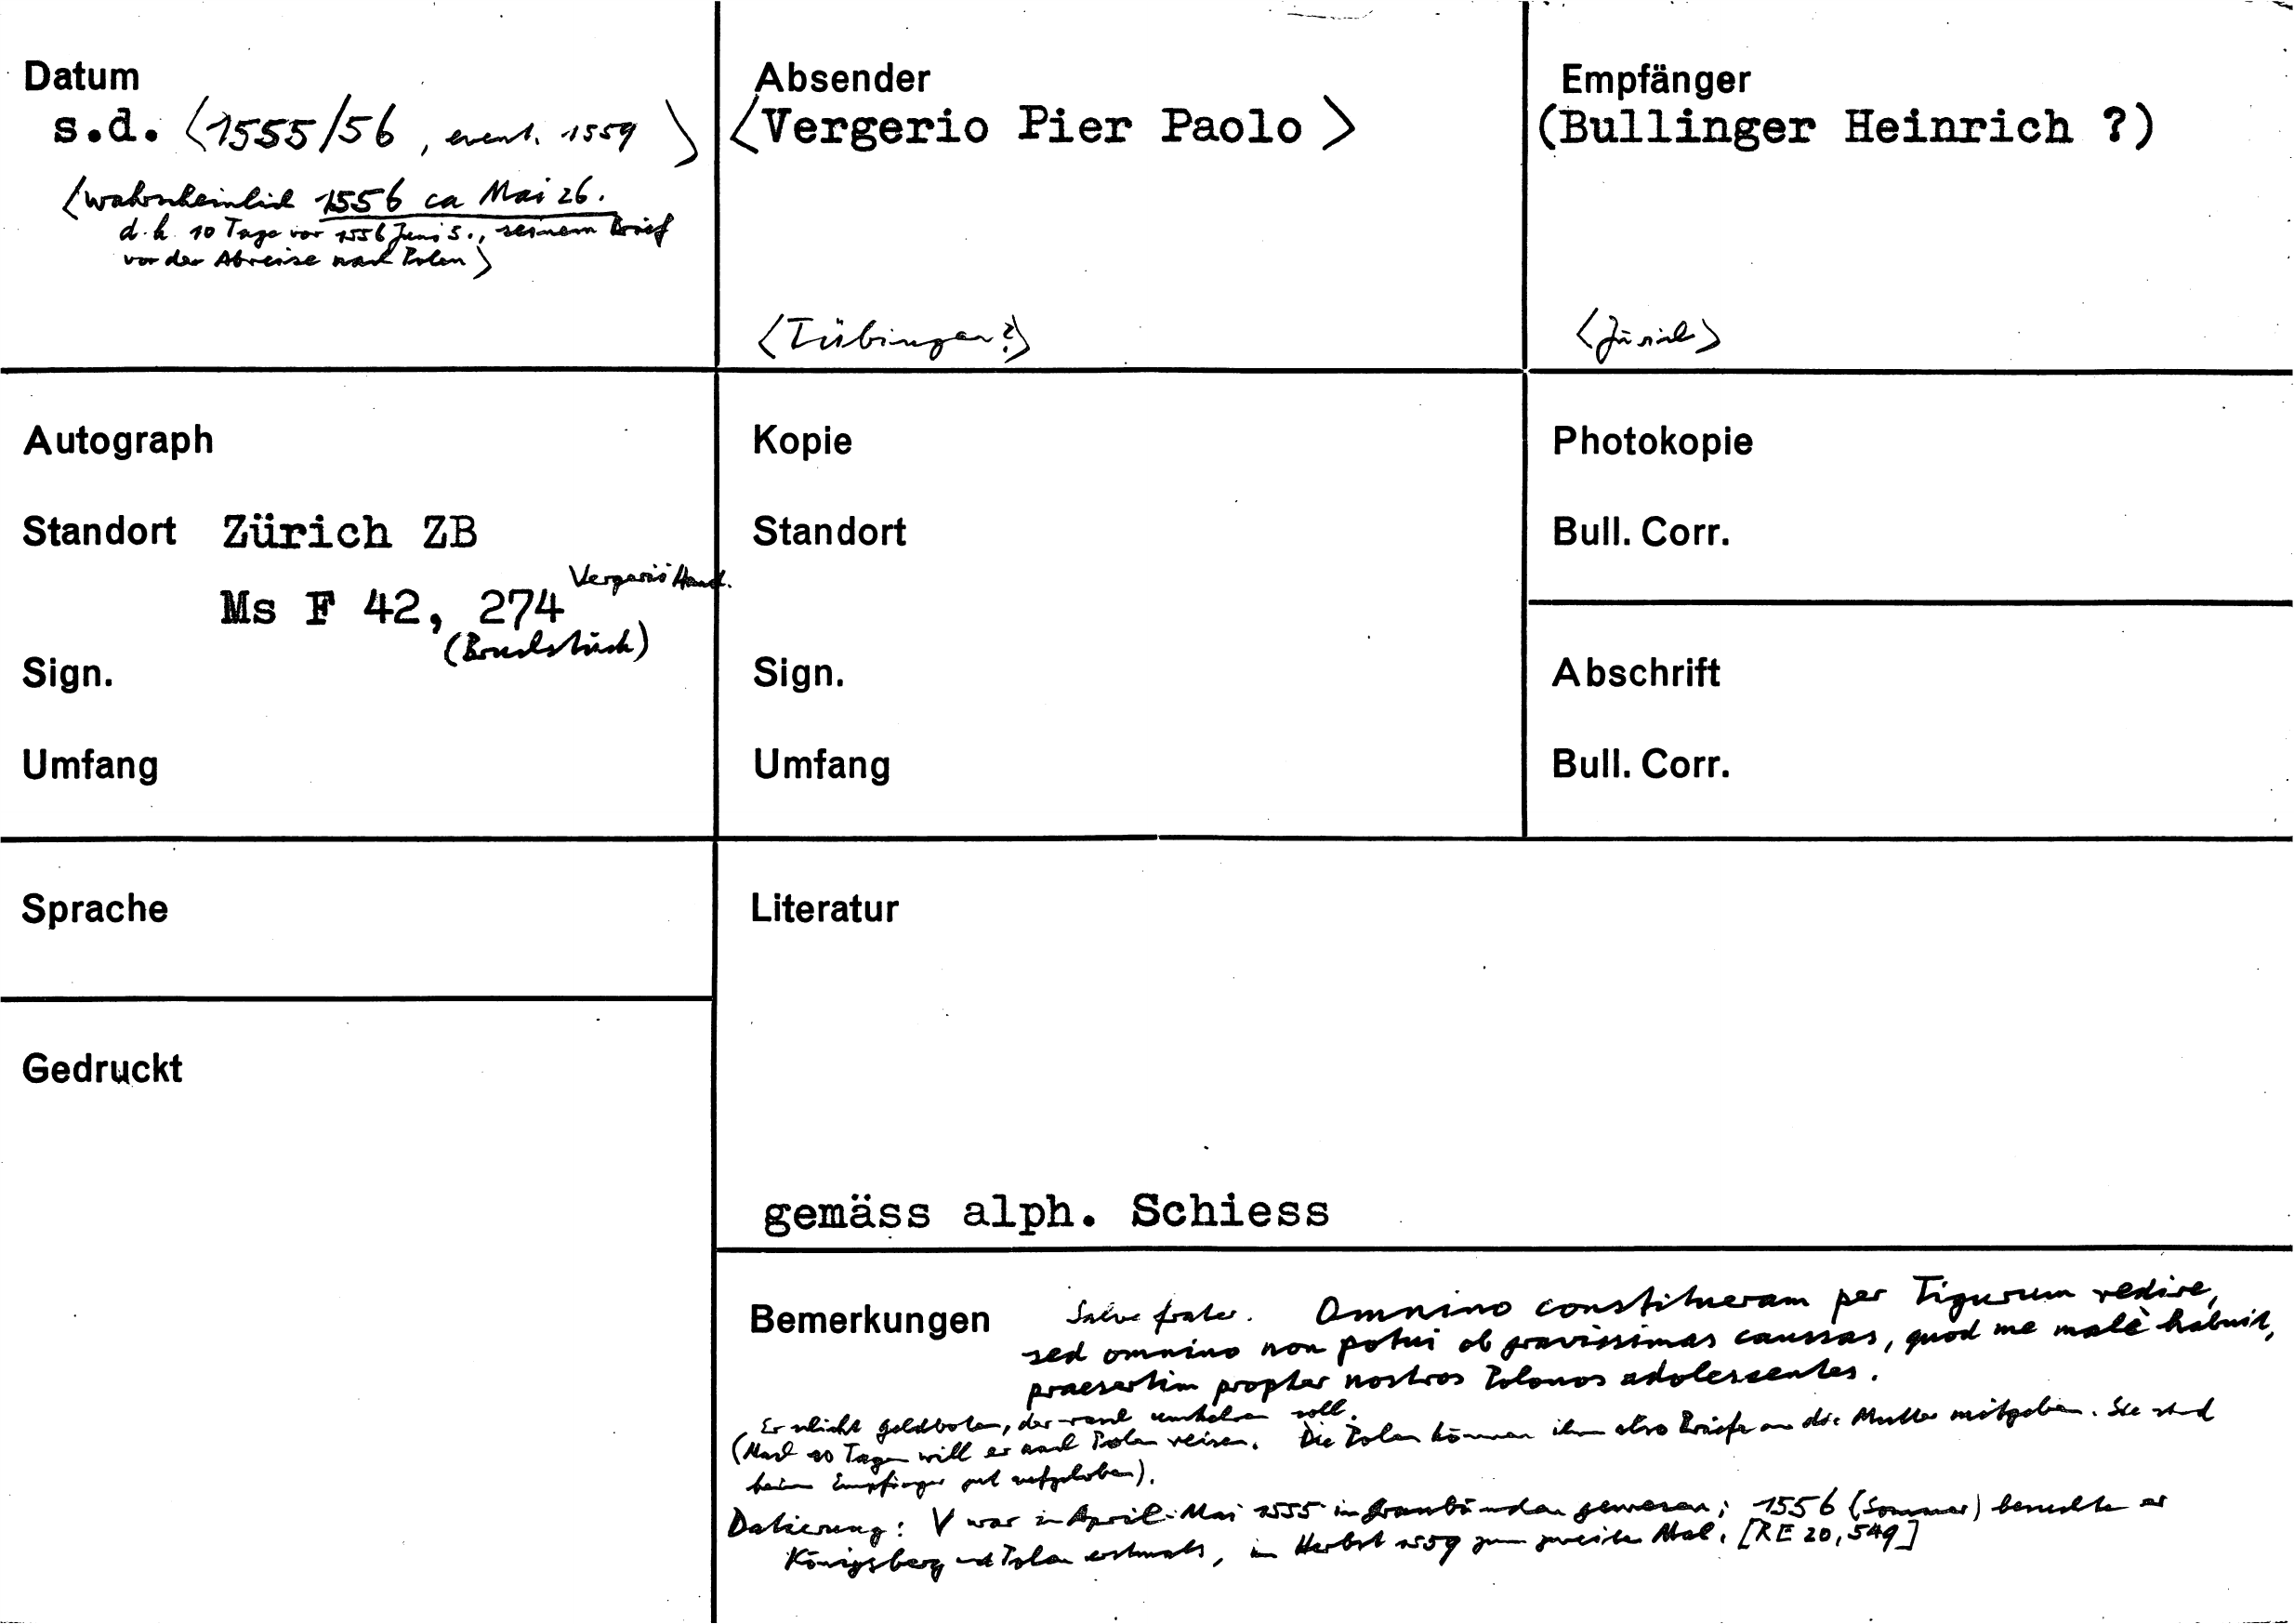 Datum
s.d. 〈1555/56, event. 1559〉
〈wahrscheinlich 1556 ca Mai 26.
d.h. 10 Tage vor 1556 Juni 5., seinem Brief
vor der Abreise nach Polen〉
Absender
〈Vergerio Pier Paolo〉
〈Tübingen?〉
Empfänger
(Bullinger Heinrich ?)
〈Zürich〉
Autograph
Standort Zürich ZB
Ms F 42, 274 Vergerios Hand.
(Bruchstück)
Sign.
Umfang
Kopie
Standort
Sign.
Umfang
Photokopie
Bull. Corr.
Abschrift
Bull. Corr.
Sprache
Gedruckt
Literatur
gemäss alph. Schiess
Bemerkungen Salve frater. Omnino constitueram per Tigurum redire,
sed omnino non potui ob gravissimas caussas, quod me malè habuit,
praesertim propter nostros Polonos adolescentes.
Er schickt Geldboten, der rasch umkehren soll.
(Nach 10 Tagen will er nach Polen reisen. Die Polen können ihm also Briefe an die Mutter mitgeben. Sie sind
beim Empfänger gut aufgehoben).
Datierung: V war in April-Mai 1555 in Graubünden gewesen; 1556 (Sommer) besuchte er
Königsberg und Polen erstmals, im Herbst 1559 zum zweiten Mal. [RE 20,549]